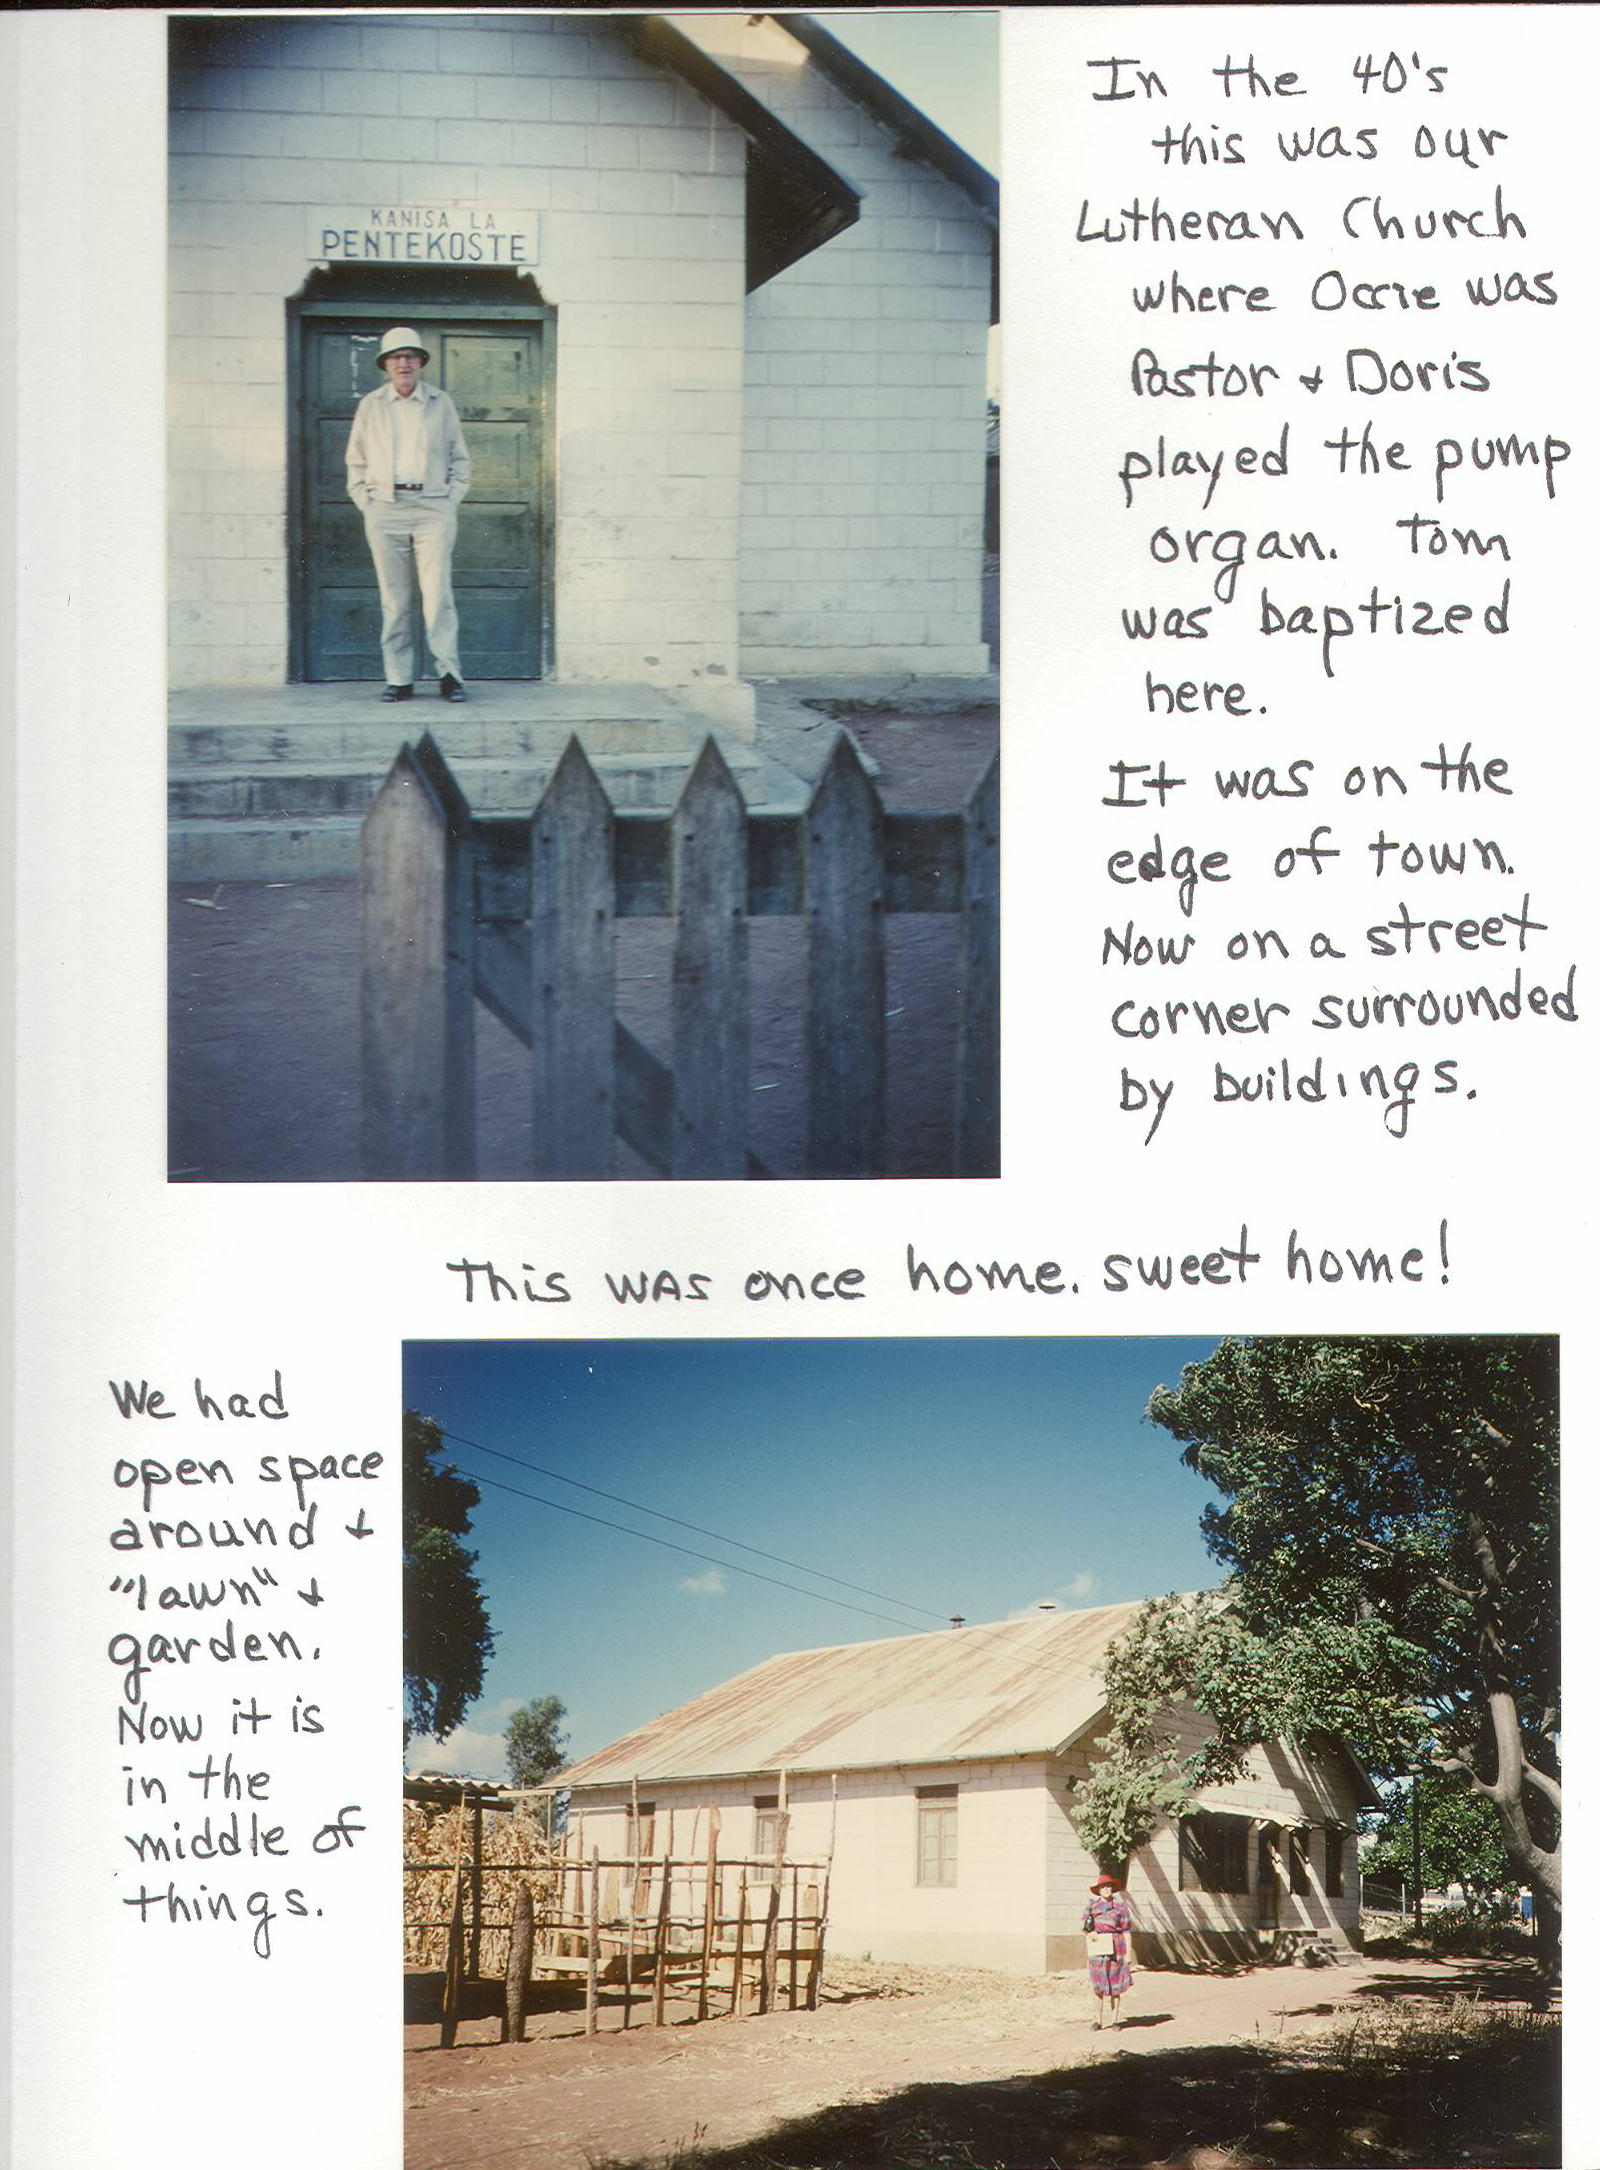 KANISA LA
PENTEKOSTE
In the 40's
this was our
Lutheran Church
where Occie was
Pastor + Doris
played the pump
organ. Tom
was baptized
here.
It was on the
edge of town.
Now on a street
corner surrounded
by buildings.
This was once home. sweet home!
We had
open space
around +
"lawn" +
garden.
Now it is
in the
middle of
things.